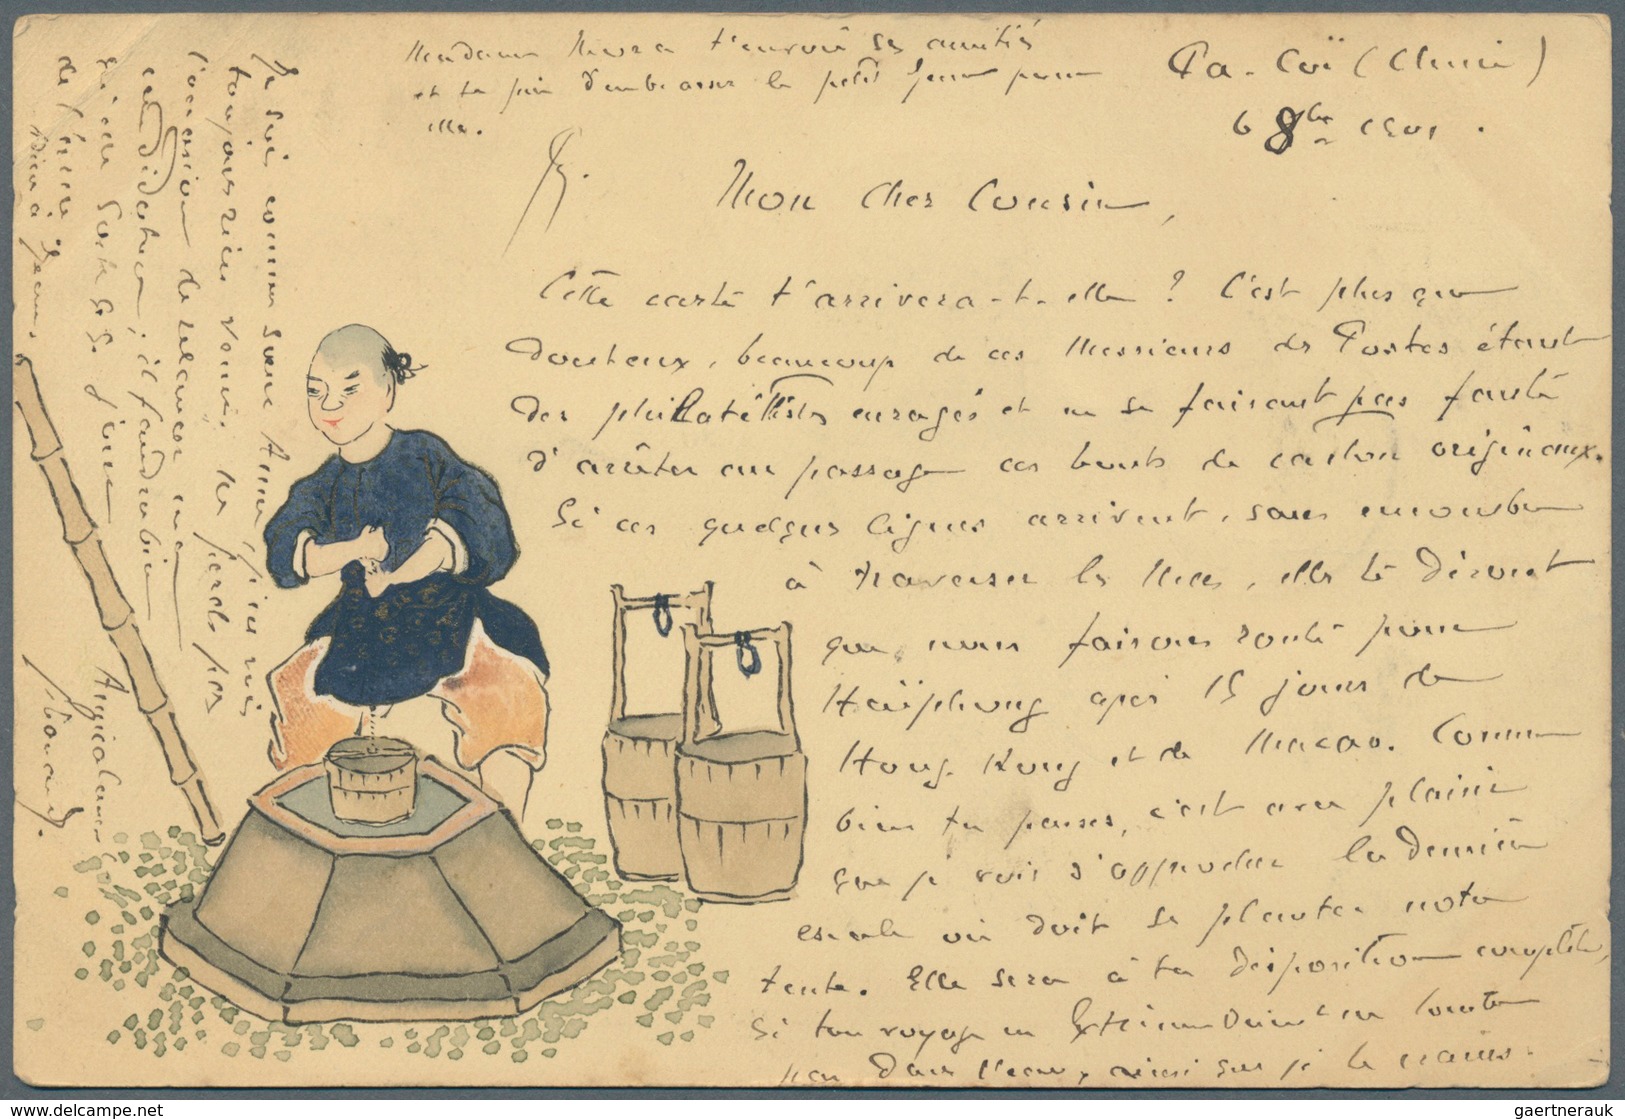 Madame Mora t'envoie ses amitiés
et te prie d'embrasser le petit Jean pour
elle.
(Chine)
6 8bre 1901.
Mon cher Cousin,
Cette carte t'arrivera-t-elle ? C'est plus que
douteux, beaucoup de ces Messieurs des Postes étant
des philatélistes enragés et ne se faisant pas faute
d'arrêter au passage ces bouts de carton originaux.
Si ces quelques lignes arrivent, sans encombre
à traverser les Mers, elles te diront
que nous faisons route pour
Haïphong après 15 jours de
Hong-Kong et de Macao. Comme
bien tu penses, c'est avec plaisir
que je vois s'approcher la dernière
escale où doit se planter notre
tente. Elle sera à ta disposition complète,
Si ton voyage en Extrême Orient ne tombe
pas dans l'eau, ainsi que je le crains.
Je suis comme Soeur Anne, je ne vois
toujours rien venir. Ne perds pas
l'occasion de relancer une
candidature ; il faudra bien
qu'elle sorte
de l'
à Jean.
gaertnerauk